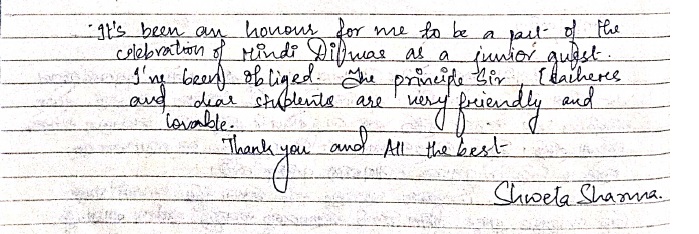 It's been an honour for me to be a part of the
celebration of Hindi Diwas as a junior guest.
I've been obliged. The principle Sir, teachers
and dear students are very friendly and
lovable.
Thank you and All the best
Shweta Sharma.